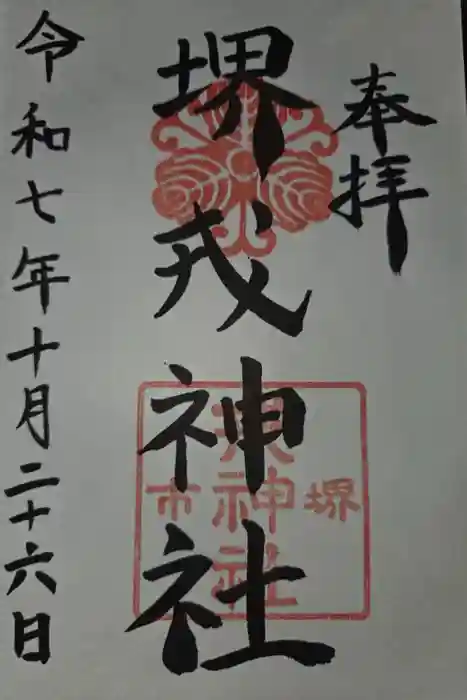 奉拝
堺戎神社
堺
戎神社
市
令和七年十月二十六日